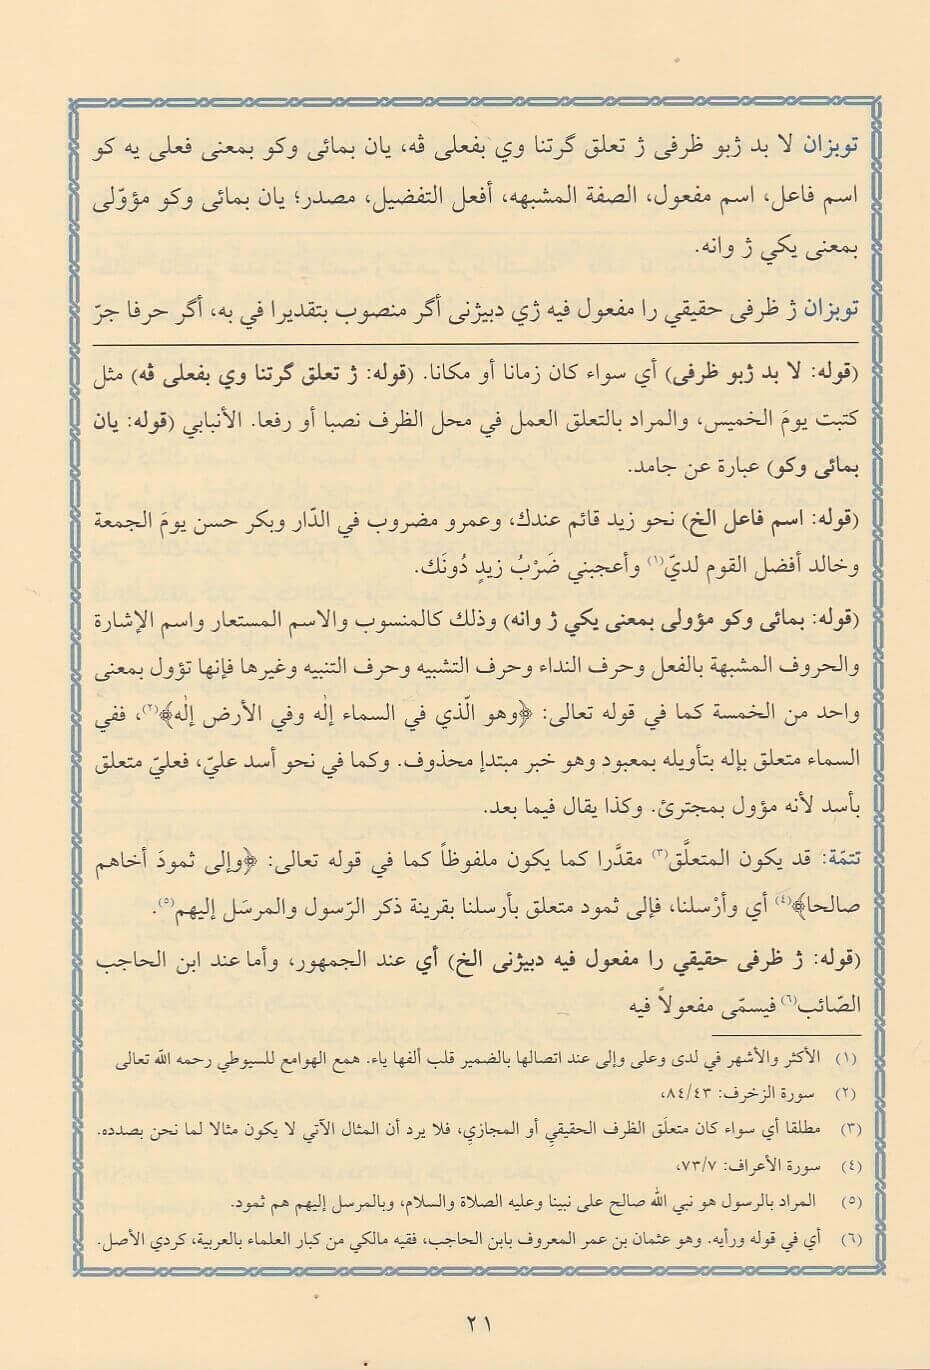 توبزان لا بد ژبو ظرفى ژ تعلق گرتنا وي بفعلى ڤه، يان بمائى وكو بمعنى فعلى يه كو
اسم فاعل، اسم مفعول، الصفة المشبهه، أفعل التفضيل، مصدر؛ يان بمائى وكو مؤوّلى
بمعنى يكي ژ وانه.
توبزان ژ ظرفى حقيقي را مفعول فيه ژي دبيژنى أگر منصوب بتقديرا في به، أگر حرفا جرّ
(قوله: لا بد ژبو ظرفى) أي سواء كان زمانا أو مكانا. (قوله: ژ تعلق گرتنا وي بفعلى ڤه) مثل
كتبت يومَ الخميس، والمراد بالتعلق العمل في محل الظرف نصبا أو رفعا. الأنبابي (قوله: يان
بمائى وكو) عبارة عن جامد.
(قوله: اسم فاعل الخ) نحو زيد قائم عندك، وعمرو مضروب في الدّار وبكر حسن يومَ الجمعة
وخالد أفضل القوم لديّ(١) وأعجبني ضَرْبُ زيدٍ دُونَك.
(قوله: بمائى وكو مؤولى بمعنى يكي ژ وانه) وذلك كالمنسوب والاسم المستعار واسم الإشارة
والحروف المشبهة بالفعل وحرف النداء وحرف التشبيه وحرف التنبيه وغيرها فإنها تؤول بمعنى
واحد من الخمسة كما في قوله تعالى: ﴿وهو الّذي في السماء إلٰه وفي الأرض إلٰه﴾(٢)، ففي
السماء متعلق بإله بتأويله بمعبود وهو خبر مبتدإ محذوف. وكما في نحو أسد عليّ، فعليّ متعلق
بأسد لأنه مؤول بمجترئ. وكذا يقال فيما بعد.
تتمّة: قد يكون المتعلَّق(٣) مقدَّرا كما يكون ملفوظاً كما في قوله تعالى: ﴿وإلى ثمودَ أخاهم
صالحا﴾(٤) أي وأرْسلنا، فإلى ثمود متعلق بأرسلنا بقرينة ذكر الرّسول والمرسَل إليهم(٥).
(قوله: ژ ظرفى حقيقي را مفعول فيه دبيژنى الخ) أي عند الجمهور، وأما عند ابن الحاجب
الصّائب(٦) فيسمّى مفعولاً فيه
(١) الأكثر والأشهر في لدى وعلى وإلى عند اتصالها بالضمير قلب ألفها ياء. همع الهوامع للسيوطي رحمه الله تعالى
(٢) سورة الزخرف: ٨٤/٤٣،
(٣) مطلقا أي سواء كان متعلَق الظرف الحقيقي أو المجازي، فلا يرد أن المثال الآتي لا يكون مثالا لما نحن بصدده.
(٤) سورة الأعراف: ٧٣/٧،
(٥) المراد بالرسول هو نبي الله صالح على نبينا وعليه الصلاة والسلام، وبالمرسل إليهم هم ثمود.
(٦) أي في قوله ورأيه. وهو عثمان بن عمر المعروف بابن الحاجب، فقيه مالكي من كبار العلماء بالعربية، كردي الأصل.
٢١